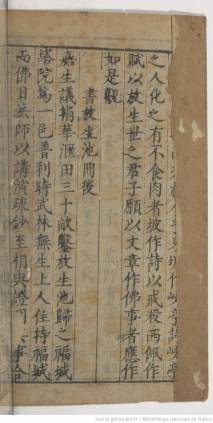 之人化之有不食肉者坡作詩以戒殺西佩作
賦以放生世之君子願以文章作佛事者應作
如是觀
書放生池冊後
嘉生議捐華滙田三十畝鑿放生池歸之福城
塔院為一邑普利時武林無生上人住持福城
而佛日法師以講演疏鈔至相與證
事合
Source gallica.bnf.fr / Bibliothèque nationale de France